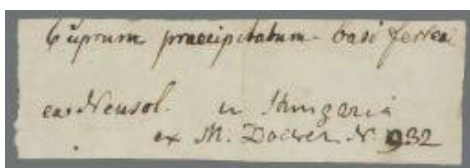 Cuprum praecipitatum basi ferrea
ex Neusol. in Hungaria
ex M. N 932